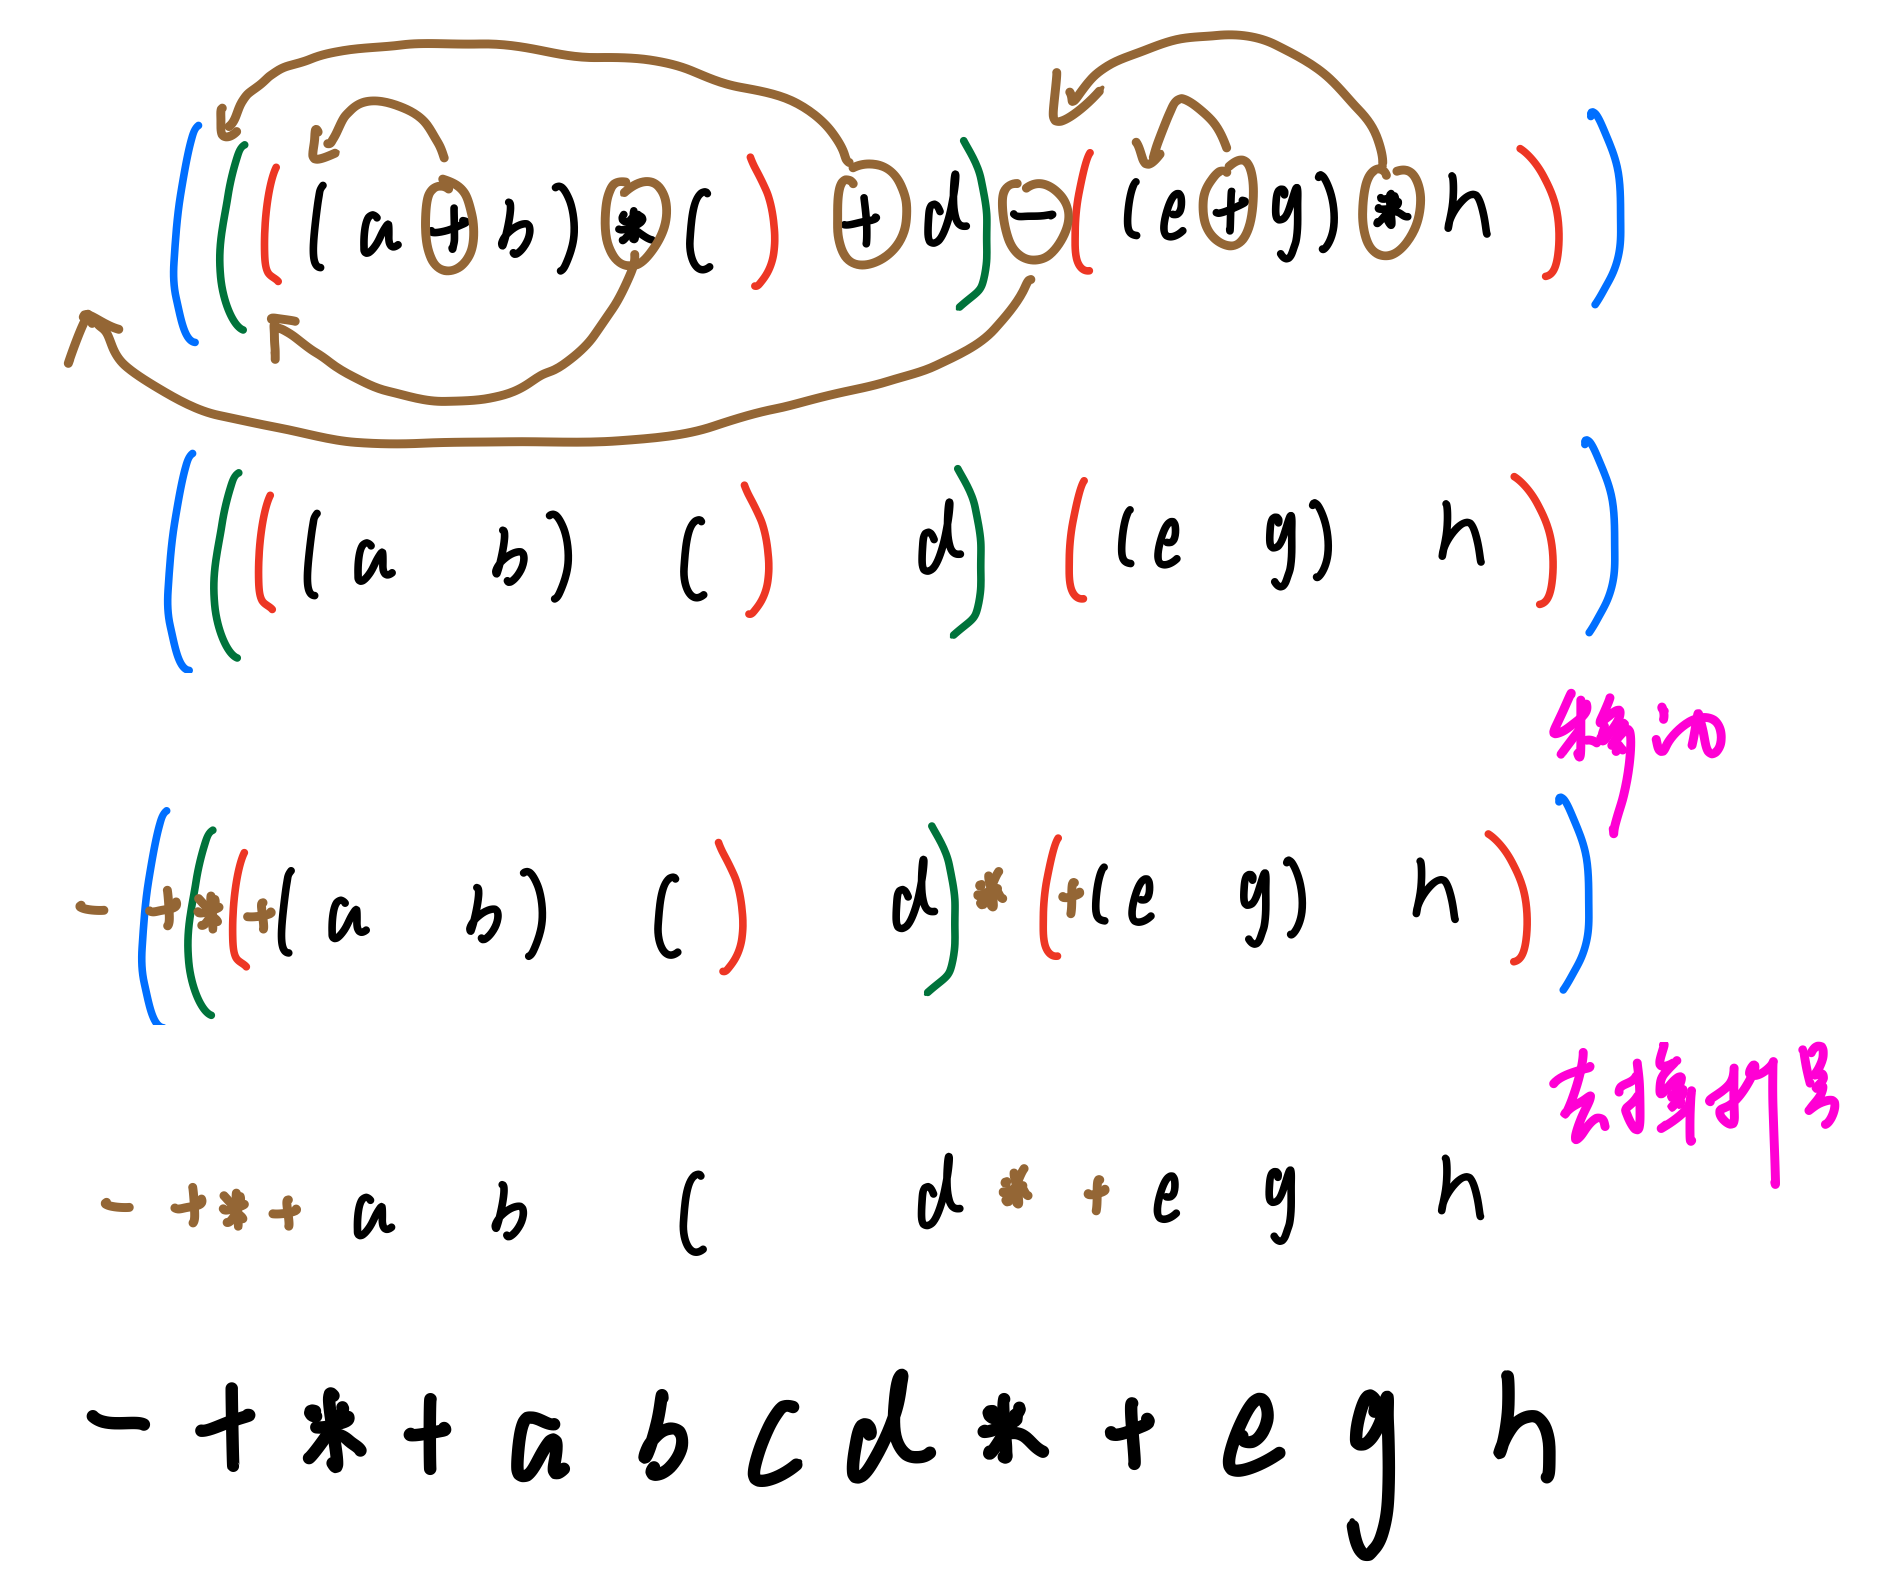 ((((a+b)*c)+d)-((e+g)*h))
((((a b) c) d) ((e g) h))
移动
-(+(*(+(a b) c) d)*(+(e g) h))
去掉括号
- + * + a b c d * + e g h
- + * + a b c d * + e g h